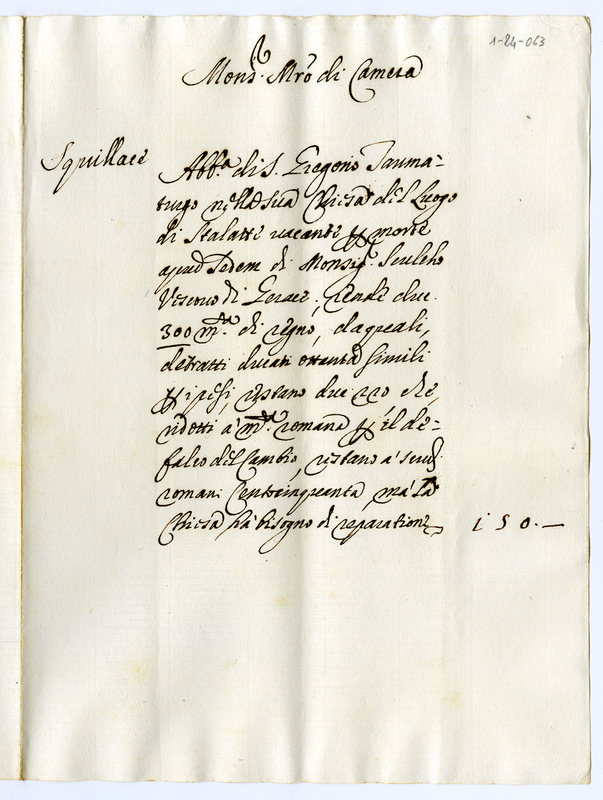 1-24-063
Mons.r Mro di Camera
Squillace
Abb.a di S. Gregorio Tauma-
turgo nella sua Chiesa del Luogo
di Stalatti vacante per morte
apud Sedem di Monsig.r
Vescovo di Gerace, rende duc.
300 m.ta di regno, da quali,
detratti ducati ottanta simili
per i pesi, restano duc. 220 che
ridotti a' m.ta romana per il de-
falco del Cambio, restano a' scudi
romani Centcinquanta, mà la
Chiesa hà bisogno di reparatione
150.—